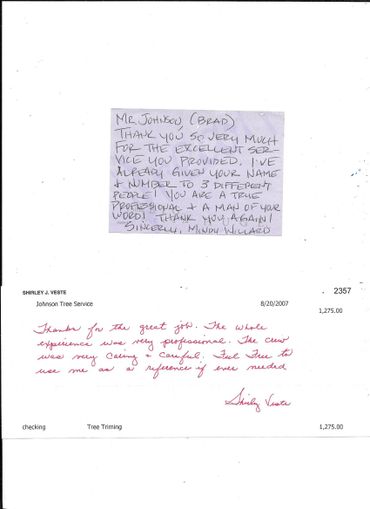 MR. JOHNSON, (BRAD)
THANK YOU SO VERY MUCH
FOR THE EXCELLENT SER-
VICE YOU PROVIDED. I'VE
ALREADY GIVEN YOUR NAME
& NUMBER TO 3 DIFFERENT
PEOPLE! YOU ARE A TRUE
PROFESSIONAL & A MAN OF YOUR
WORD! THANK YOU AGAIN!
SINCERLY, MINDY WILLARD
SHIRLEY J. VESTE 2357
Johnson Tree Service 8/20/2007
1,275.00
Thanks for the great job. The whole
experience was very professional. The crew
was very caring & careful. Feel Free to
use me as a reference if ever needed
Shirley Veste
checking Tree Triming 1,275.00